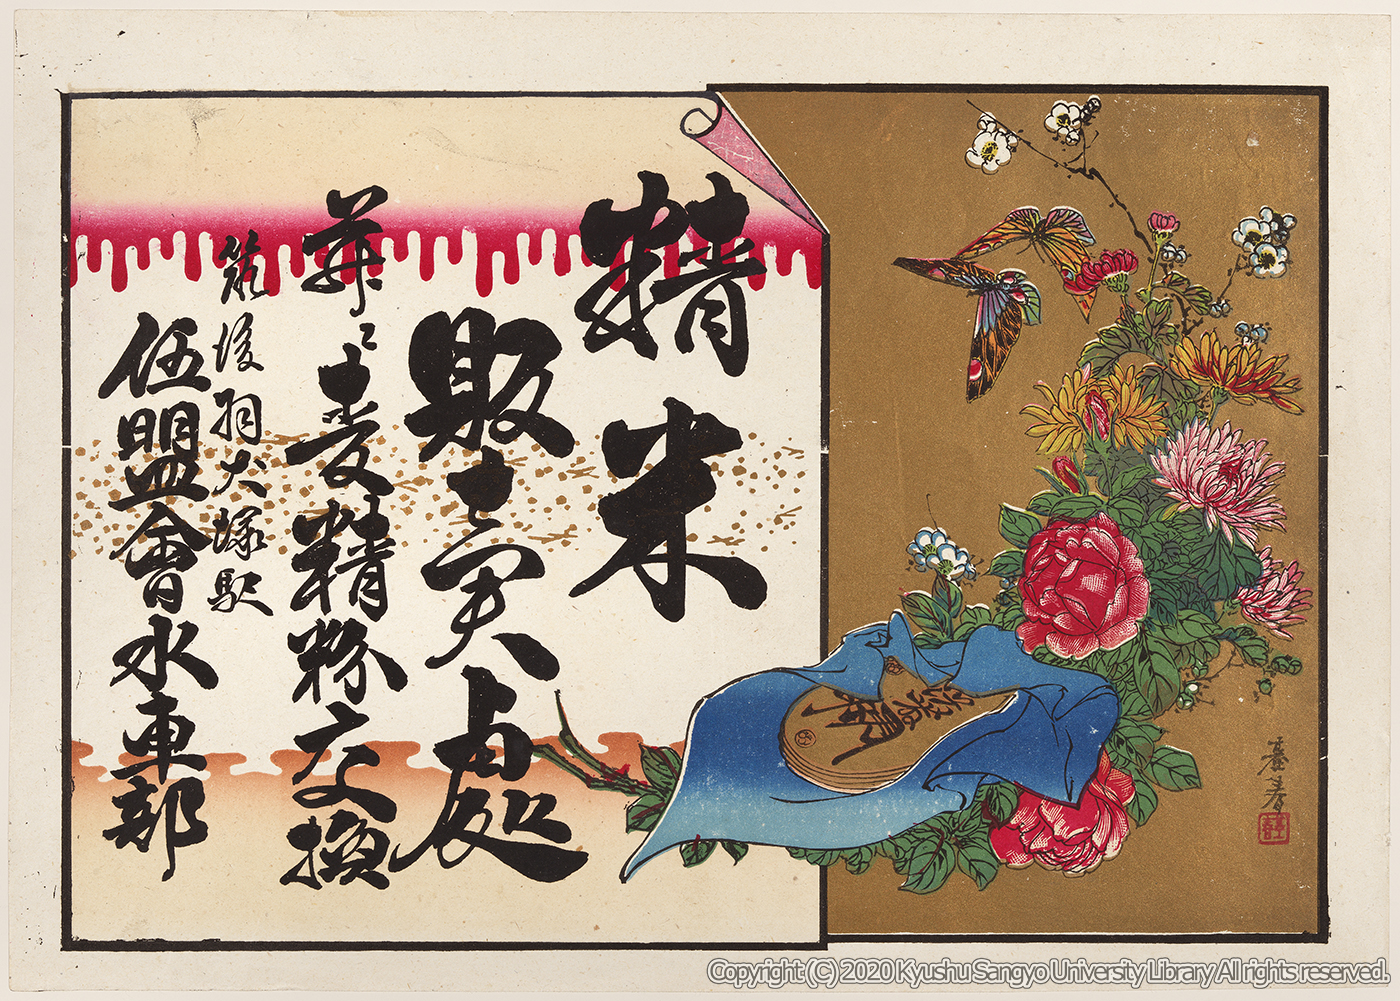 精米
販賣處
并ニ麦精粉交換
筑後羽犬塚駅
伍盟會水車部
Copyright (C) 2020 Kyushu Sangyo University Library All rights reserved.